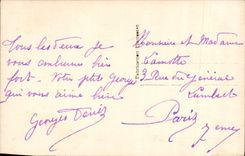 Tous les deux je
vous embrasse bien
fort. Votre ptite George
qui vous aime bien
Georges Denis
Monsieur et Madame
Camotte
3 Rue du Général
Lambert
Paris
7eme